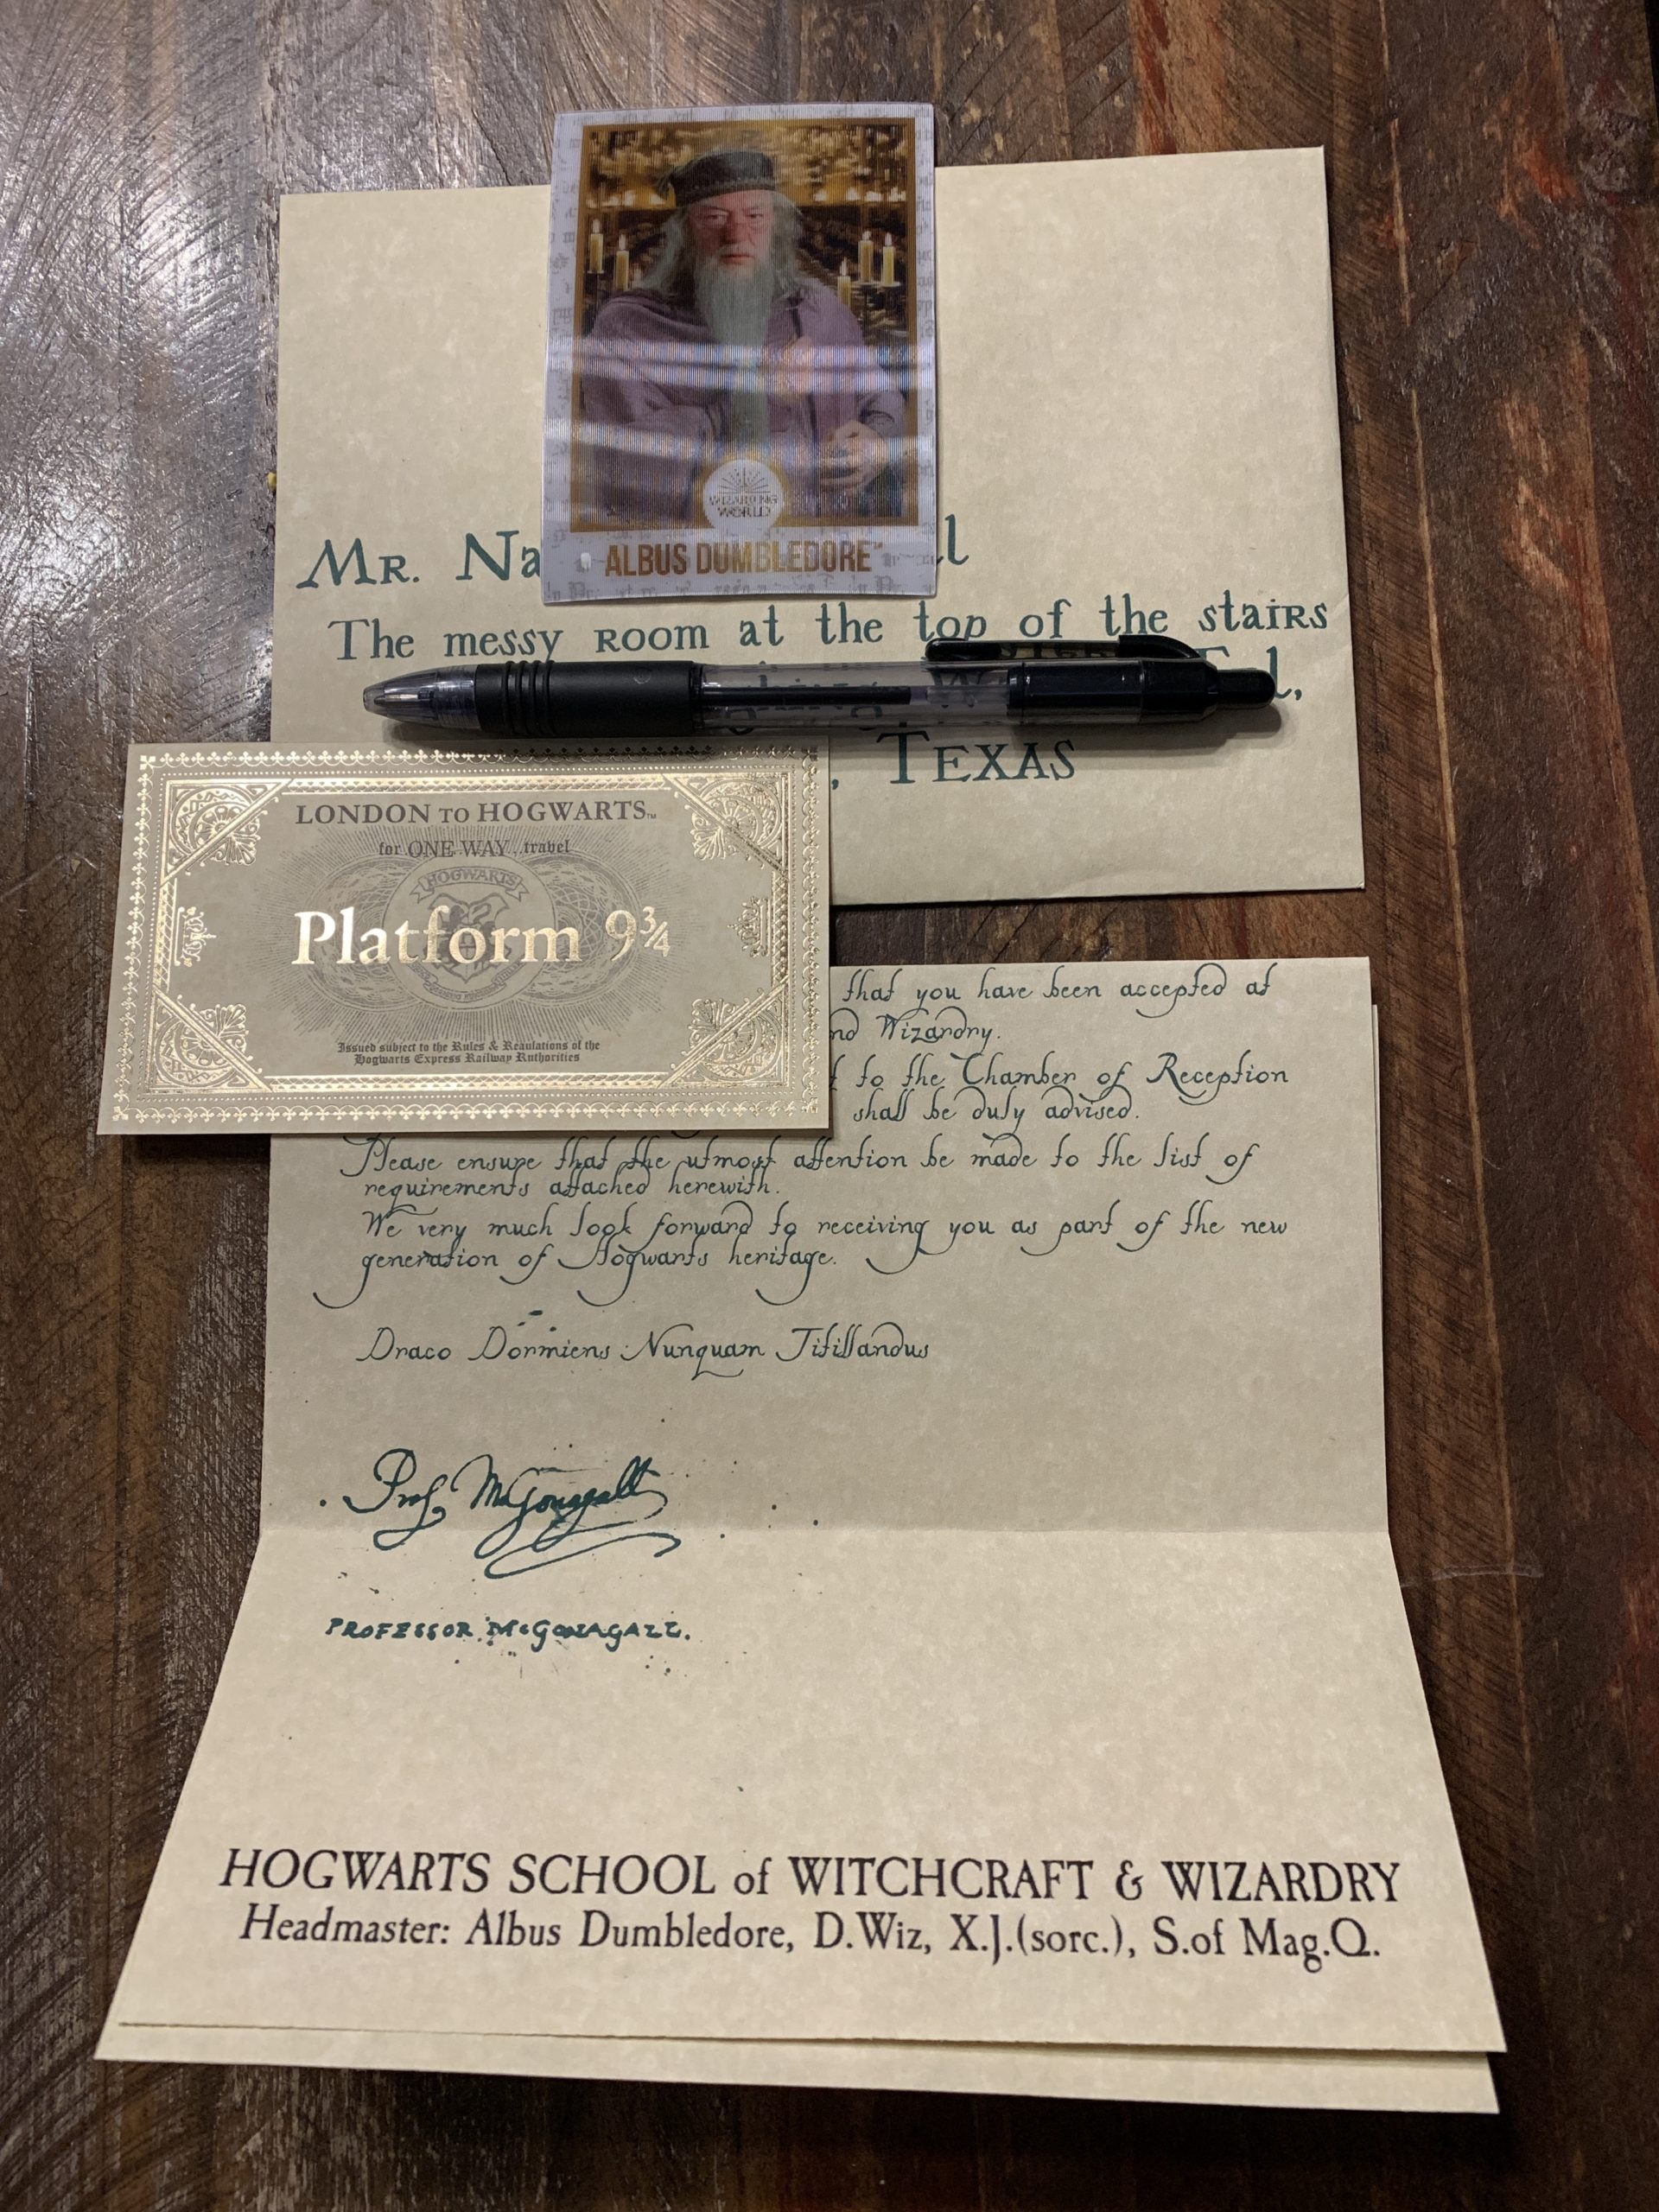 WIZARDING
WORLD
ALBUS DUMBLEDORE™
MR.
The messy ROOM at the top of the stairs
, TEXAS
LONDON TO HOGWARTS™
for ONE WAY travel
HOGWARTS
Platform 9¾
Issued subject to the Rules & Regulations of the
Hogwarts Express Railway Authorities
that you have been accepted at
Wizardry.
to the Chamber of Reception
shall be duly advised.
Please ensure that the utmost attention be made to the list of
requirements attached herewith.
We very much look forward to receiving you as part of the new
generation of Hogwarts heritage.
Draco Dormiens Nunquam Titillandus
Prof. McGonagall
PROFESSOR McGONAGALL.
HOGWARTS SCHOOL of WITCHCRAFT & WIZARDRY
Headmaster: Albus Dumbledore, D.Wiz, X.J.(sorc.), S.of Mag.Q.